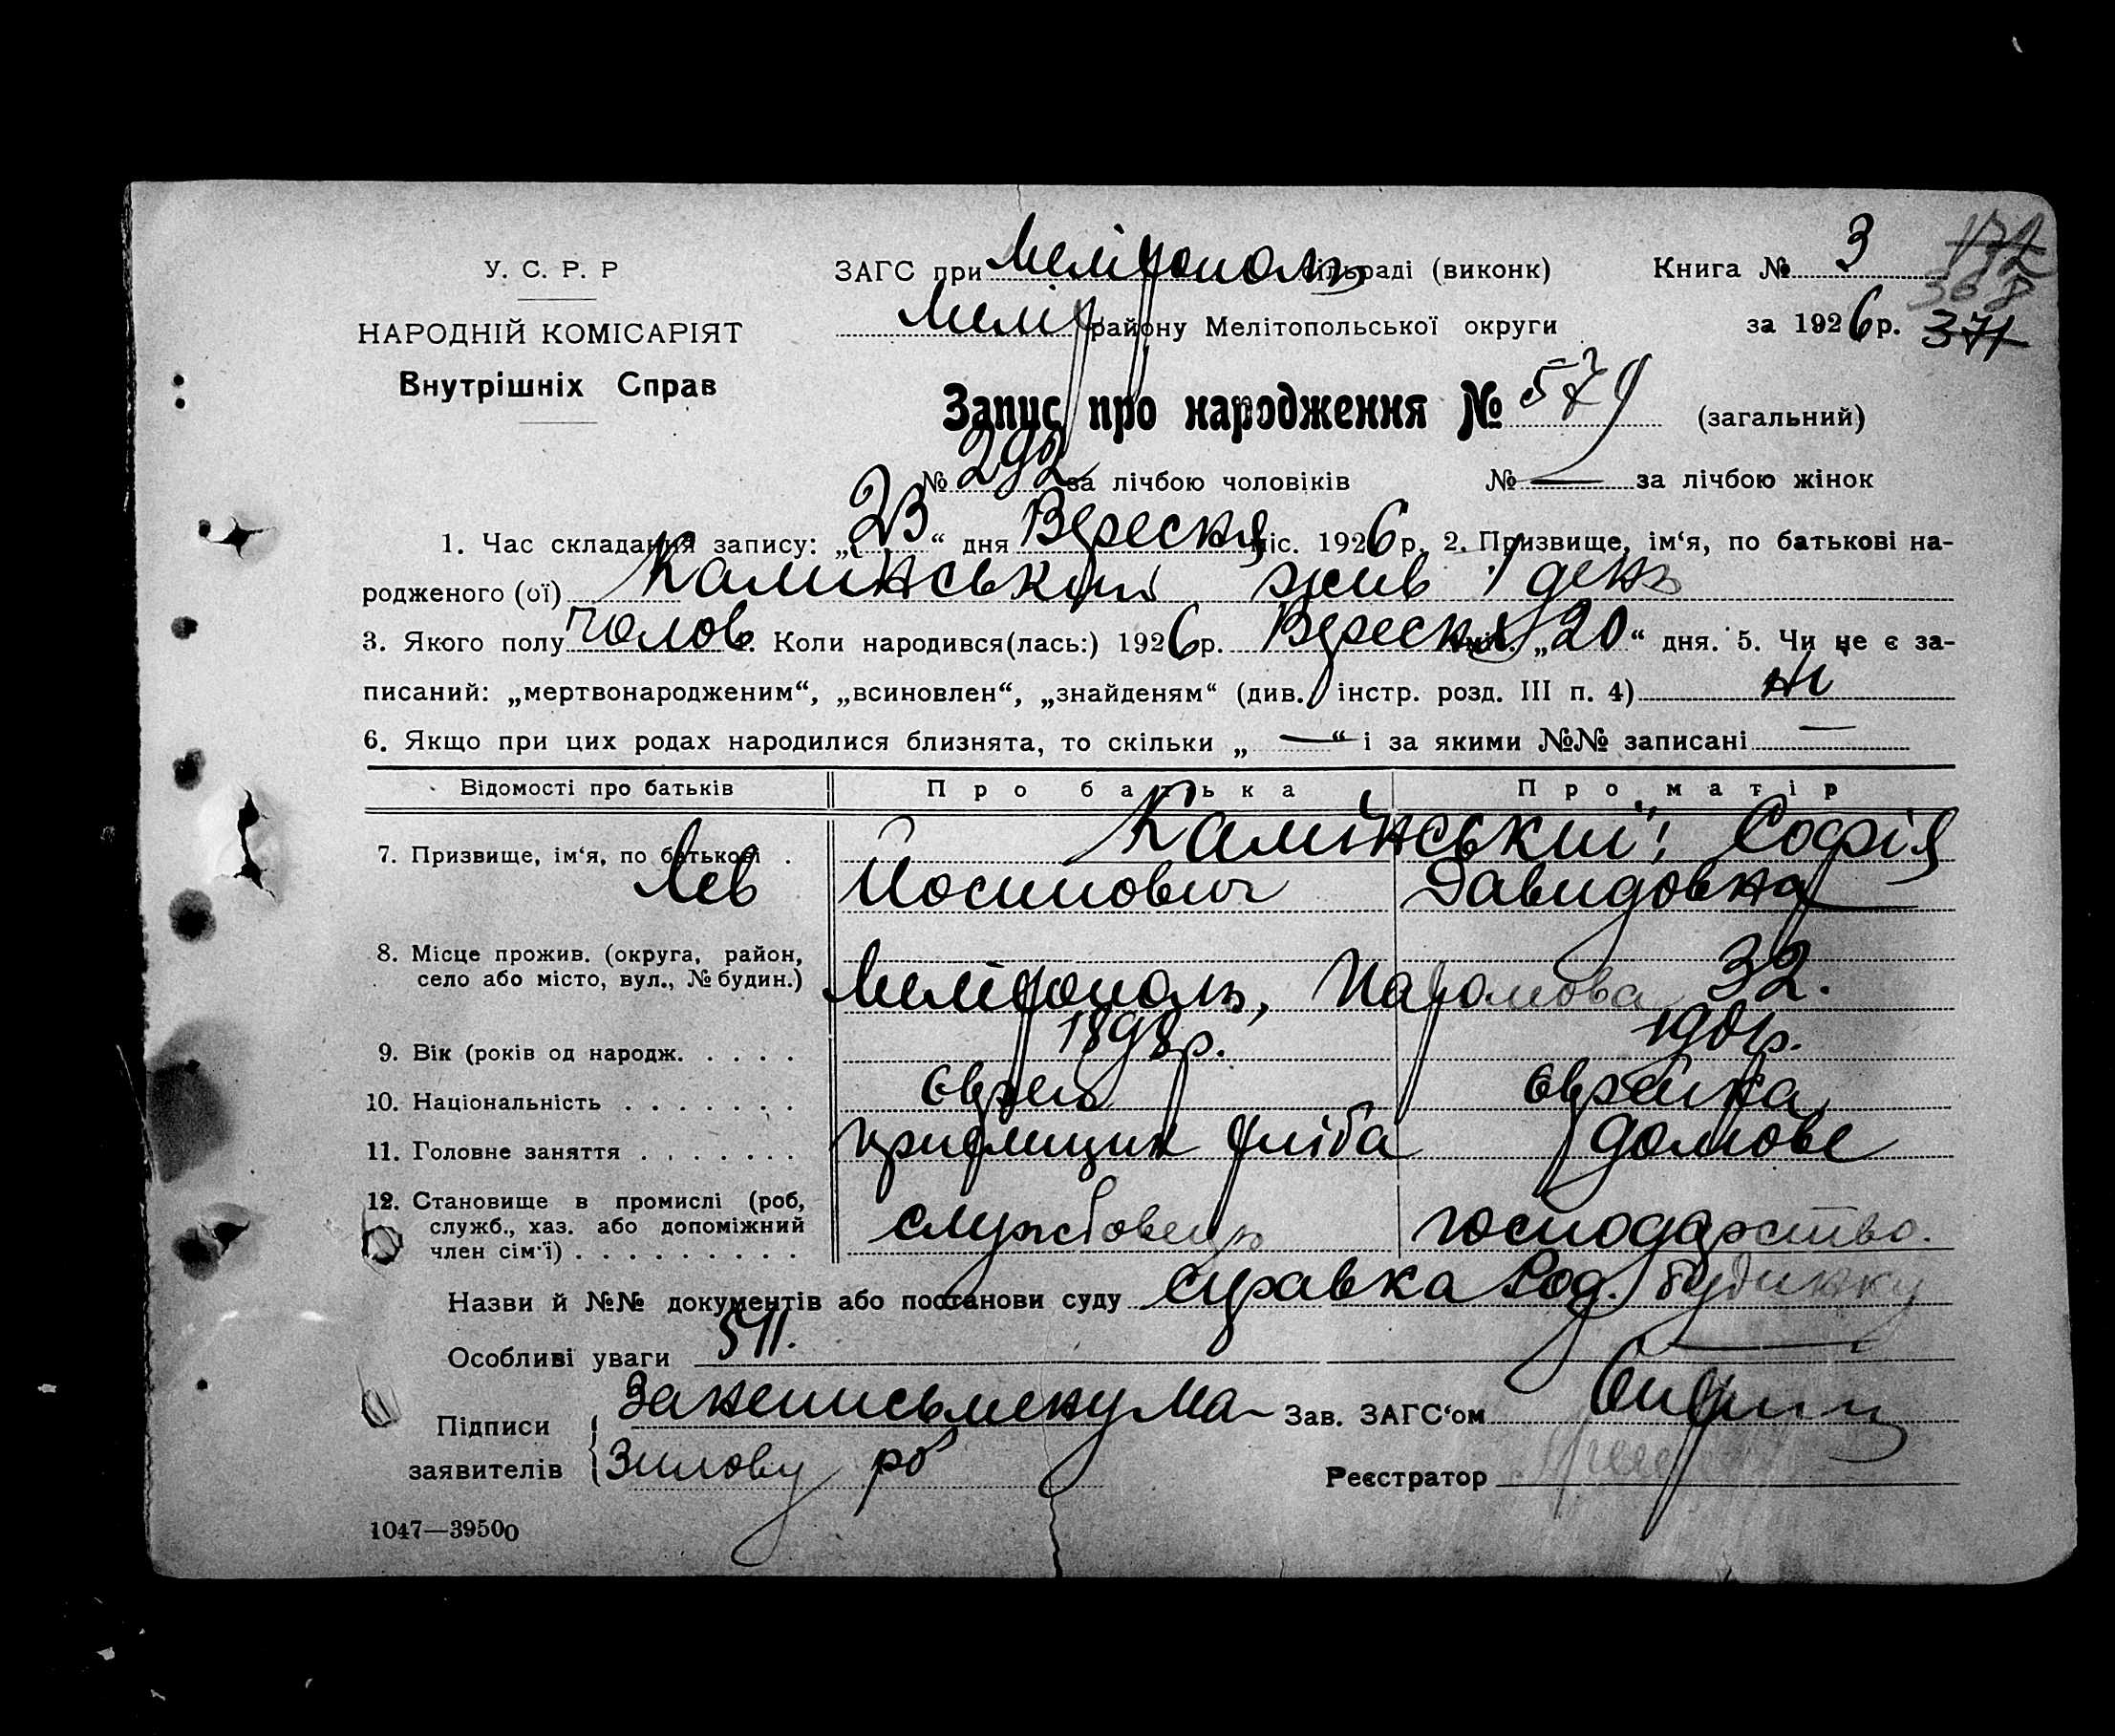 У. С. Р. Р
НАРОДНІЙ КОМІСАРІЯТ
Внутрішніх Справ
ЗАГС при Мелітополь сільраді (виконк)
Меліт району Мелітопольської округи
Книга № 3
172
308
за 1926 р. 371
Запис про народження № 579 (загальний)
№ 292 за лічбою чоловіків № — за лічбою жінок
1. Час складання запису: „23“ дня Вересня міс. 1926 р. 2. Призвище, ім‘я, по батькові на-
родженого (ої) Камінський жив 1 день
3. Якого полу чолов. Коли народився(лась:) 1926 р. Вересня міс. „20“ дня. 5. Чи не є за-
писаний: „мертвонародженим“, „всиновлен“, „знайденям“ (див. інстр. розд. III п. 4) ні
6. Якщо при цих родах народилися близнята, то скільки „ — “ і за якими №№ записані —
Відомості про батьків Про батька Про матір
7. Призвище, ім‘я, по батькові . Камінський; Софія
Лев Йосипович Давидовна
8. Місце прожив. (округа, район,
село або місто, вул., № будин.) Мелітополь, 32.
9. Вік (років од народж. . . . . 1898 р. 1901 р.
10. Національність . . . . . . . Єврей Єврейка
11. Головне заняття . . . . . . . приймщик хліба домове
12. Становище в промислі (роб,
служб., хаз. або допоміжний
член сім‘ї) . . . . . . . . . службовець господарство.
Назви й №№ документів або постанови суду справка Род. будинку
Особливі уваги 511.
Підписи
заявителів
За неписьмену Ма-
Зилову
Зав. ЗАГС‘ом
Реєстратор
1047—39500